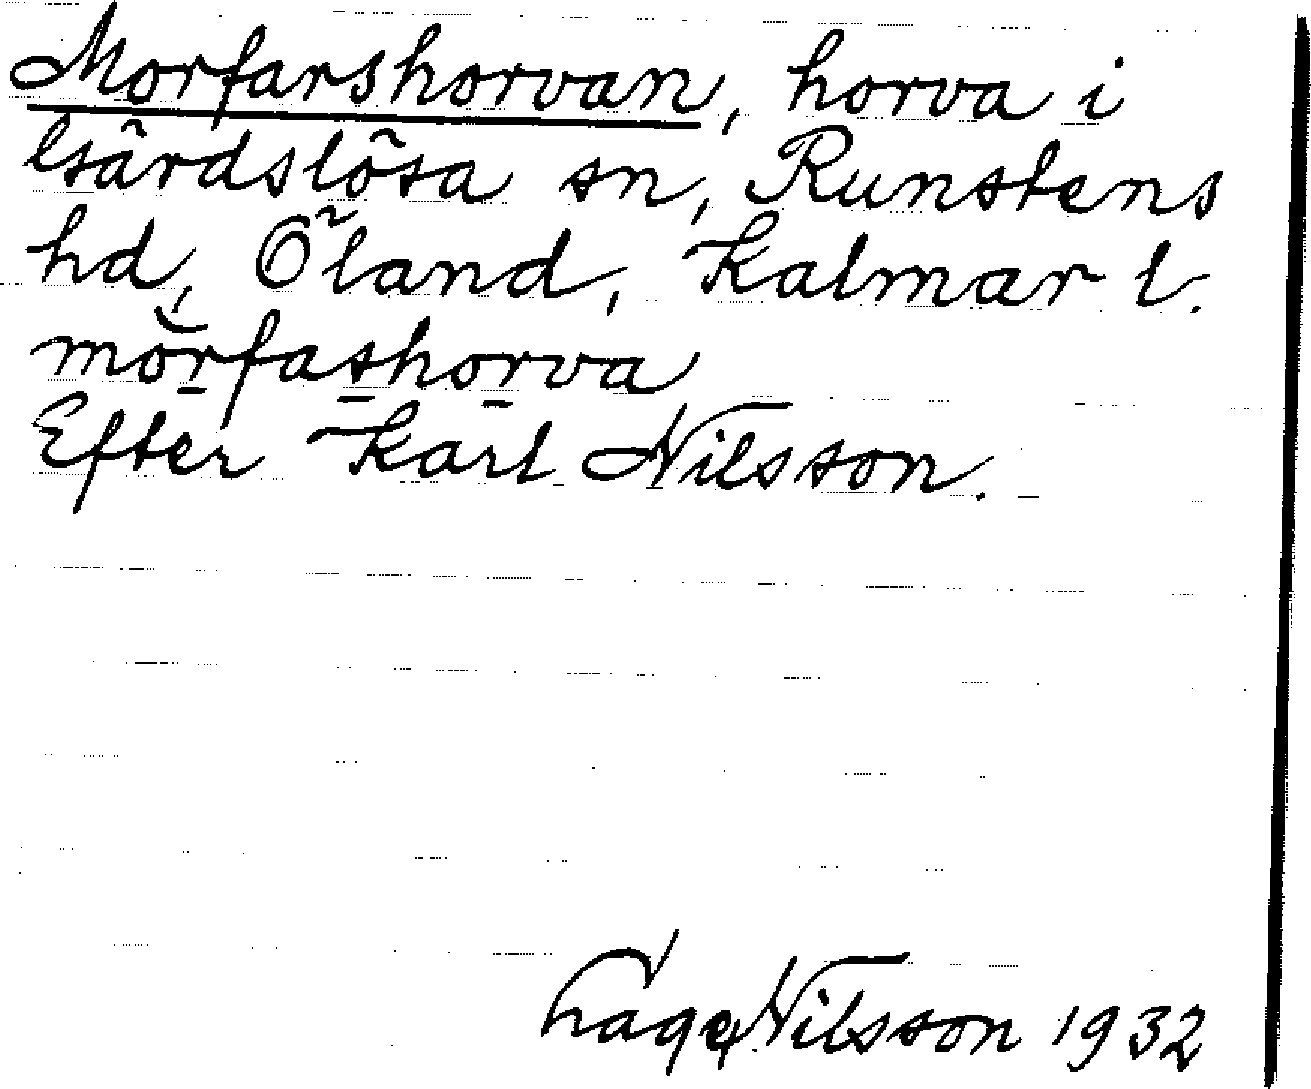 Morfarshorvan, horva i
Gärdslösa sn, Runstens
hd, Öland, Kalmar l.
mörfashorva
Efter Karl Nilsson.
Tage Nilsson 1932